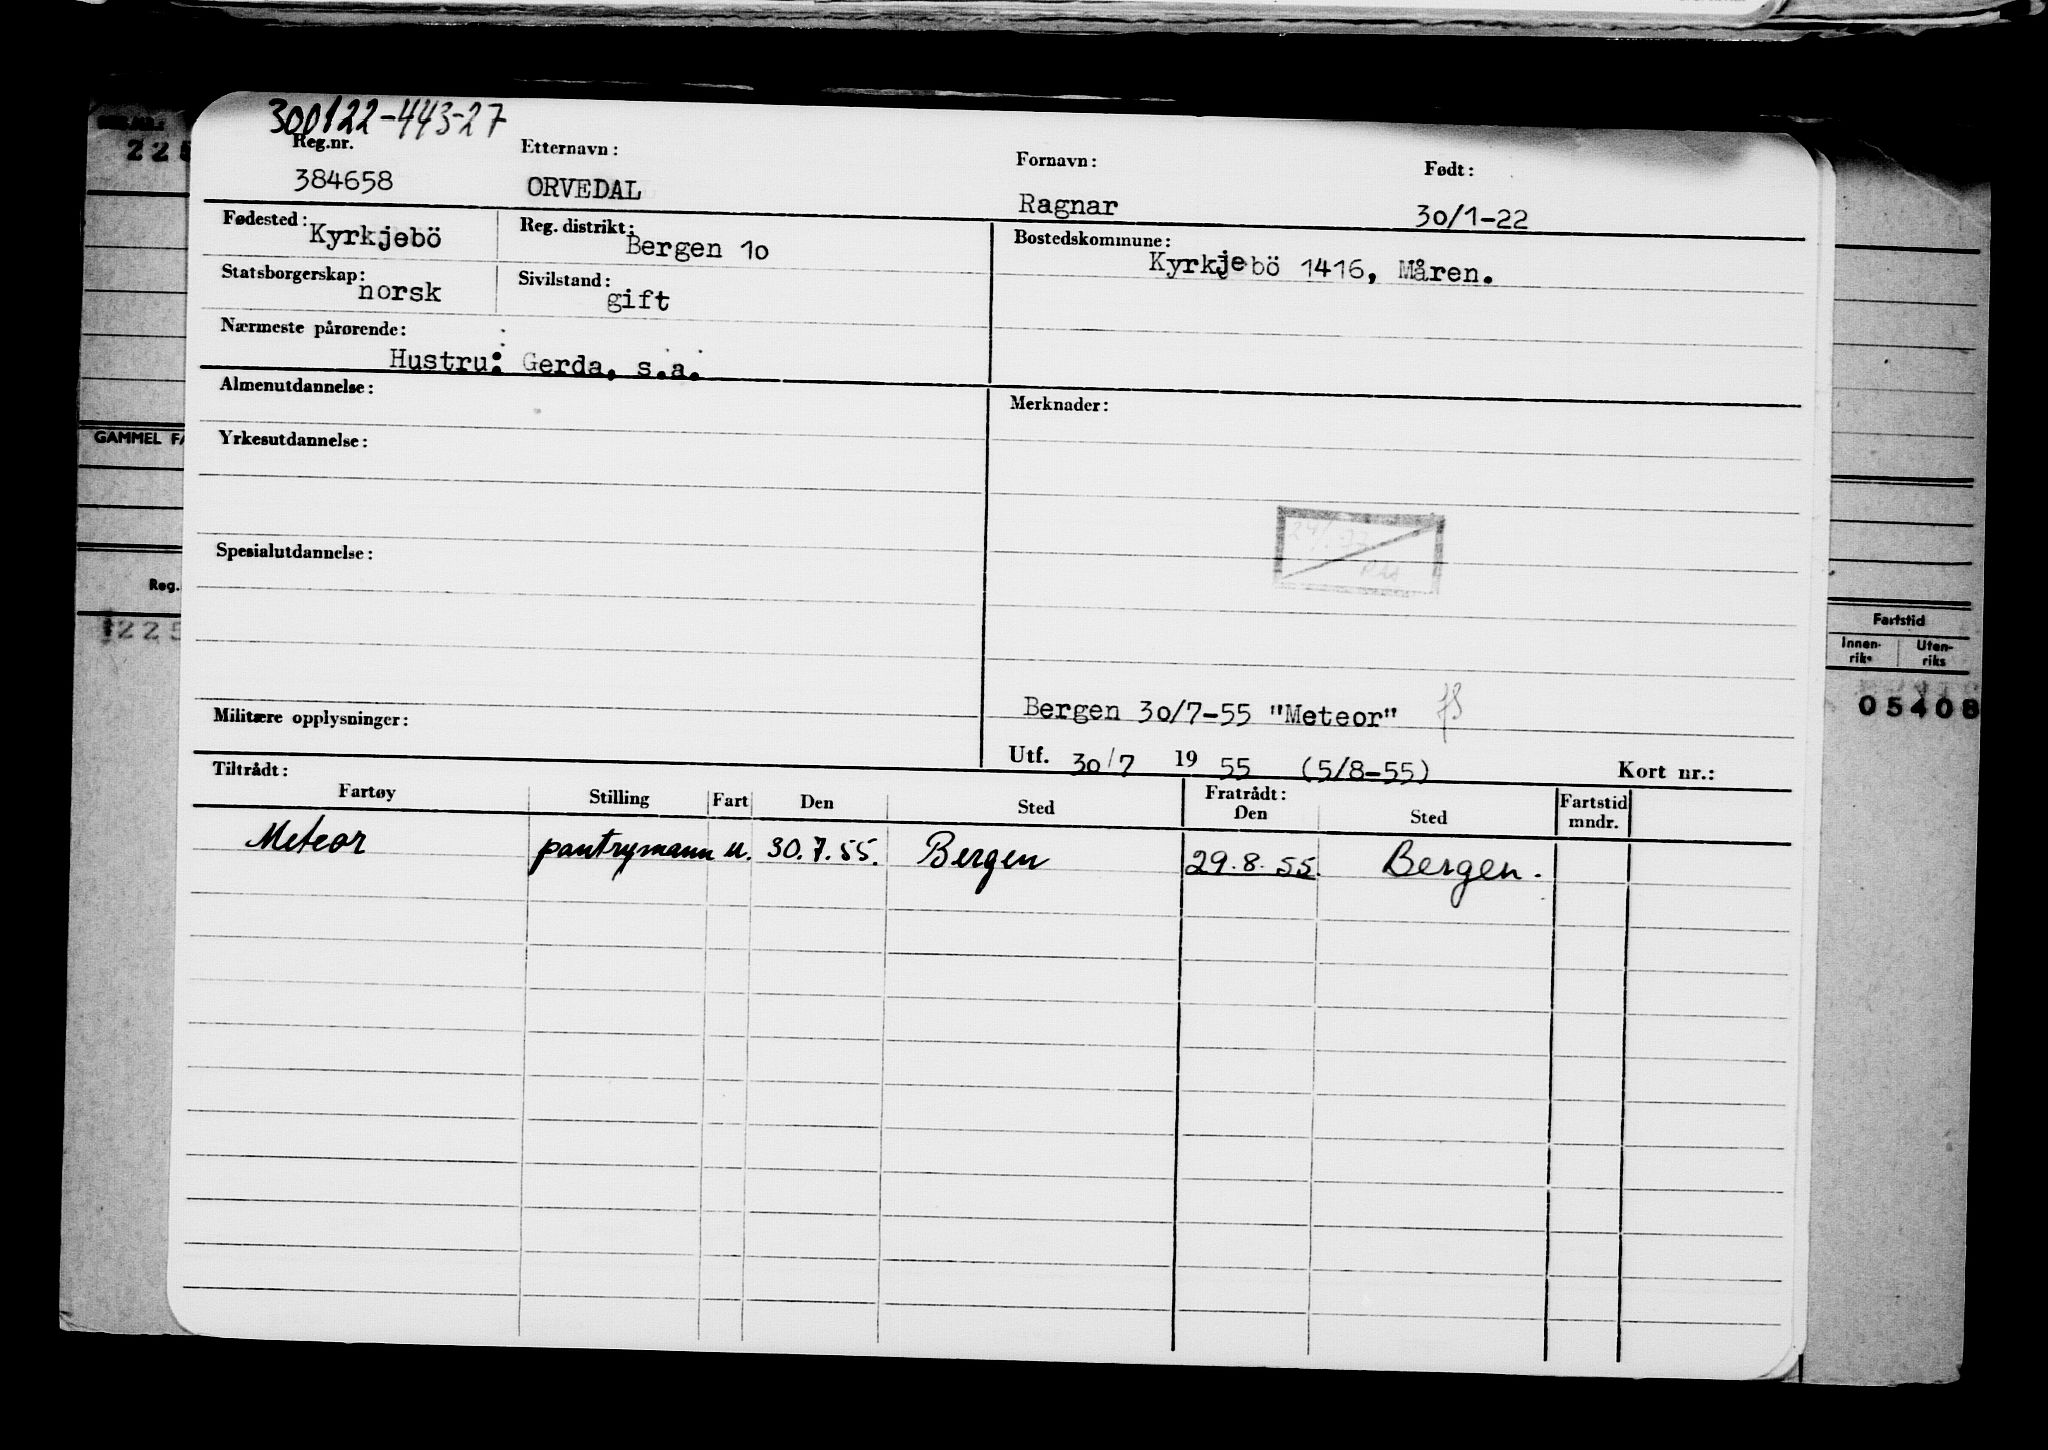 300122-443-27
Reg.nr. Etternavn: Fornavn: Født:
384658 ORVEDAL Ragnar 30/1-22
Fødested: Kyrkjebö Reg. distrikt: Bergen 10 Bostedskommune:
Kyrkjebö 1416, Måren.
Statsborgerskap: norsk Sivilstand: gift
Nærmeste pårørende:
Hustru: Gerda, s.a.
Almenutdannelse: Merknader:
Yrkesutdannelse:
Spesialutdannelse:
Bergen 30/7-55 "Meteor"
Militære opplysninger:
Utf. 30/7 1955 (5/8-55) Kort nr.:
Tiltrådt: Fratrådt:
Fartøy Stilling Fart Den Sted Den Sted Fartstid mndr.
Meteor pantrymann u. 30.7.55. Bergen 29.8.55. Bergen.
225
GAMMEL
Reg.
225
Fartstid
Innen-riks Uten-riks
05408